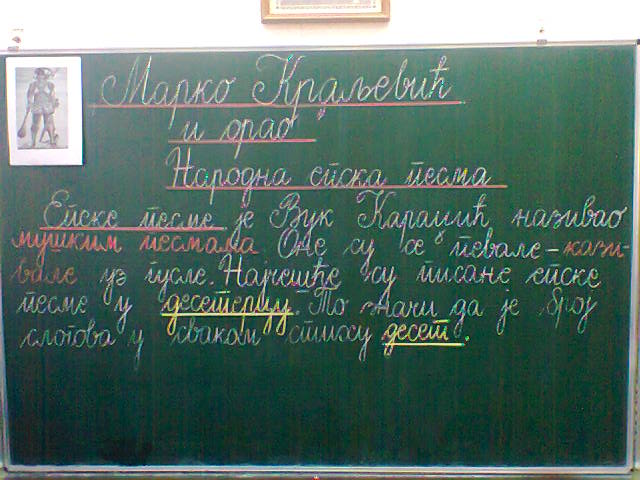 Марко Краљевић
и орао
Народна епска песма
Епске песме је Вук Караџић називао
мушким песмама. Оне су се певале – кази-
вале уз гусле. Најчешће су писане епске
песме у десетерцу. То значи да је број
слогова у сваком стиху десет.